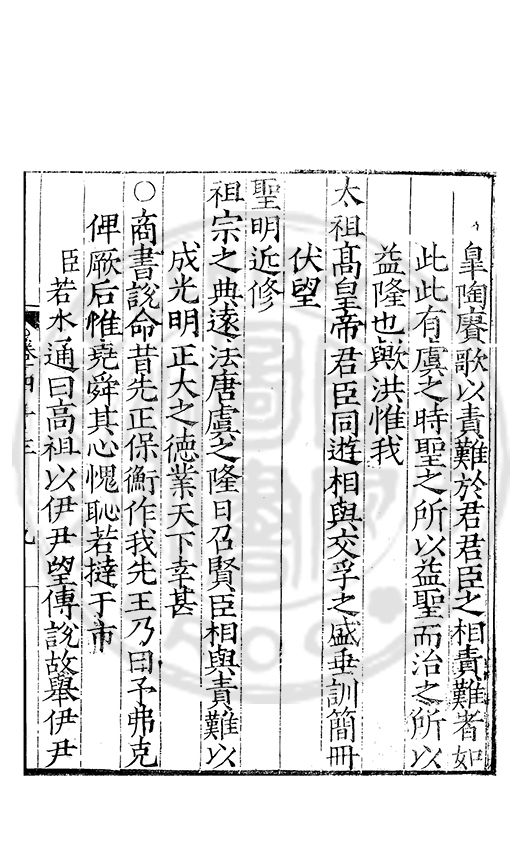 皐陶賡歌以責難於君君臣之相責難者如
此此有虞之時聖之所以益聖而治之所以
益隆也歟洪惟我
太祖高皇帝君臣同遊相與交孚之盛垂訓簡冊
伏望
聖明近修
祖宗之典遠法唐虞之隆日召賢臣相與責難以
成光明正大之德業天下幸甚
○商書說命昔先正保衡作我先王乃曰予弗克
俾厥后惟堯舜其心愧恥若撻于市
臣若水通曰高祖以伊尹望傅說故舉伊尹
卷二四十三
九